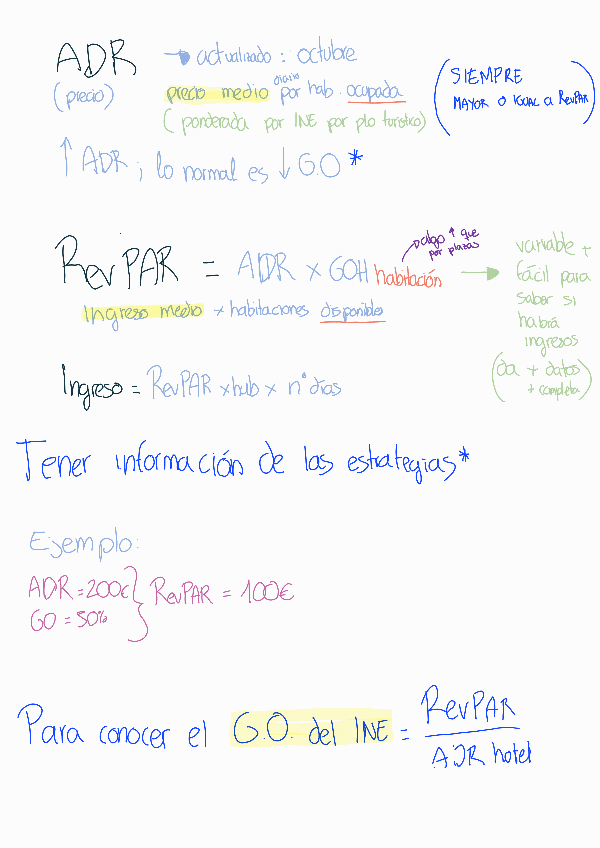 ADR → actualizado : octubre
(precio) precio medio diario por hab. ocupada
(ponderada por INE por plo turístico)
(SIEMPRE
MAYOR O IGUAL a RevPAR)
↑ ADR ; lo normal es ↓ G.O *
RevPAR = ADR x GOH habitación
algo ↑ que
por plazas
→ variable +
fácil para
saber si
habrá
ingresos
(da + datos
+ completa)
Ingreso medio x habitaciones disponibles
Ingreso = RevPAR x hab x nº días
Tener información de las estrategias*
Ejemplo:
ADR = 200€ } RevPAR = 100€
GO = 50%
Para conocer el G.O. del INE = RevPAR
ADR hotel